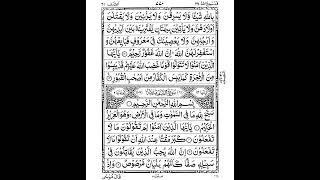 بِاللّٰهِ شَيْئًا وَّلَا يَسْرِقْنَ وَلَا يَزْنِيْنَ وَلَا يَقْتُلْنَ
اَوْلَادَهُنَّ وَلَا يَاْتِيْنَ بِبُهْتَانٍ يَّفْتَرِيْنَهٗ بَيْنَ اَيْدِيْهِنَّ
وَاَرْجُلِهِنَّ وَلَا يَعْصِيْنَكَ فِيْ مَعْرُوْفٍ فَبَايِعْهُنَّ وَ
اسْتَغْفِرْ لَهُنَّ اللّٰهَ اِنَّ اللّٰهَ غَفُوْرٌ رَّحِيْمٌ يٰٓاَيُّهَا
الَّذِيْنَ اٰمَنُوْا لَا تَتَوَلَّوْا قَوْمًا غَضِبَ اللّٰهُ عَلَيْهِمْ قَدْ يَىِٕسُوْا
مِنَ الْاٰخِرَةِ كَمَا يَىِٕسَ الْكُفَّارُ مِنْ اَصْحٰبِ الْقُبُوْرِ
بِسْمِ اللّٰهِ الرَّحْمٰنِ الرَّحِيْمِ
سَبَّحَ لِلّٰهِ مَا فِي السَّمٰوٰتِ وَمَا فِي الْاَرْضِ وَهُوَ الْعَزِيْزُ
الْحَكِيْمُ يٰٓاَيُّهَا الَّذِيْنَ اٰمَنُوْا لِمَ تَقُوْلُوْنَ مَا لَا
تَفْعَلُوْنَ كَبُرَ مَقْتًا عِنْدَ اللّٰهِ اَنْ تَقُوْلُوْا مَا لَا
تَفْعَلُوْنَ اِنَّ اللّٰهَ يُحِبُّ الَّذِيْنَ يُقَاتِلُوْنَ فِيْ
سَبِيْلِهٖ صَفًّا كَاَنَّهُمْ بُنْيَانٌ مَّرْصُوْصٌ وَاِذْ